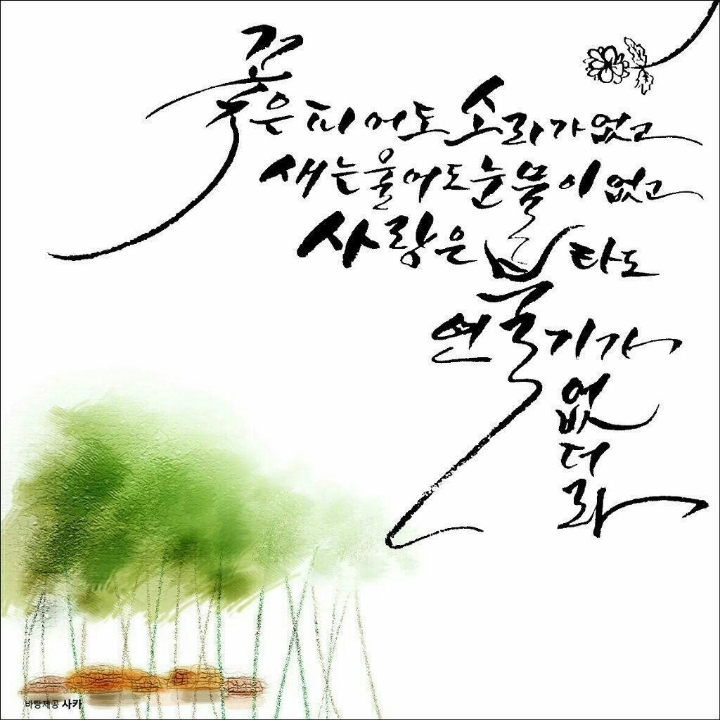 꽃은 피어도 소리가 없고
새는 울어도 눈물이 없고
사랑은 불타도
연기가
없
더
라
바탕제공 사카